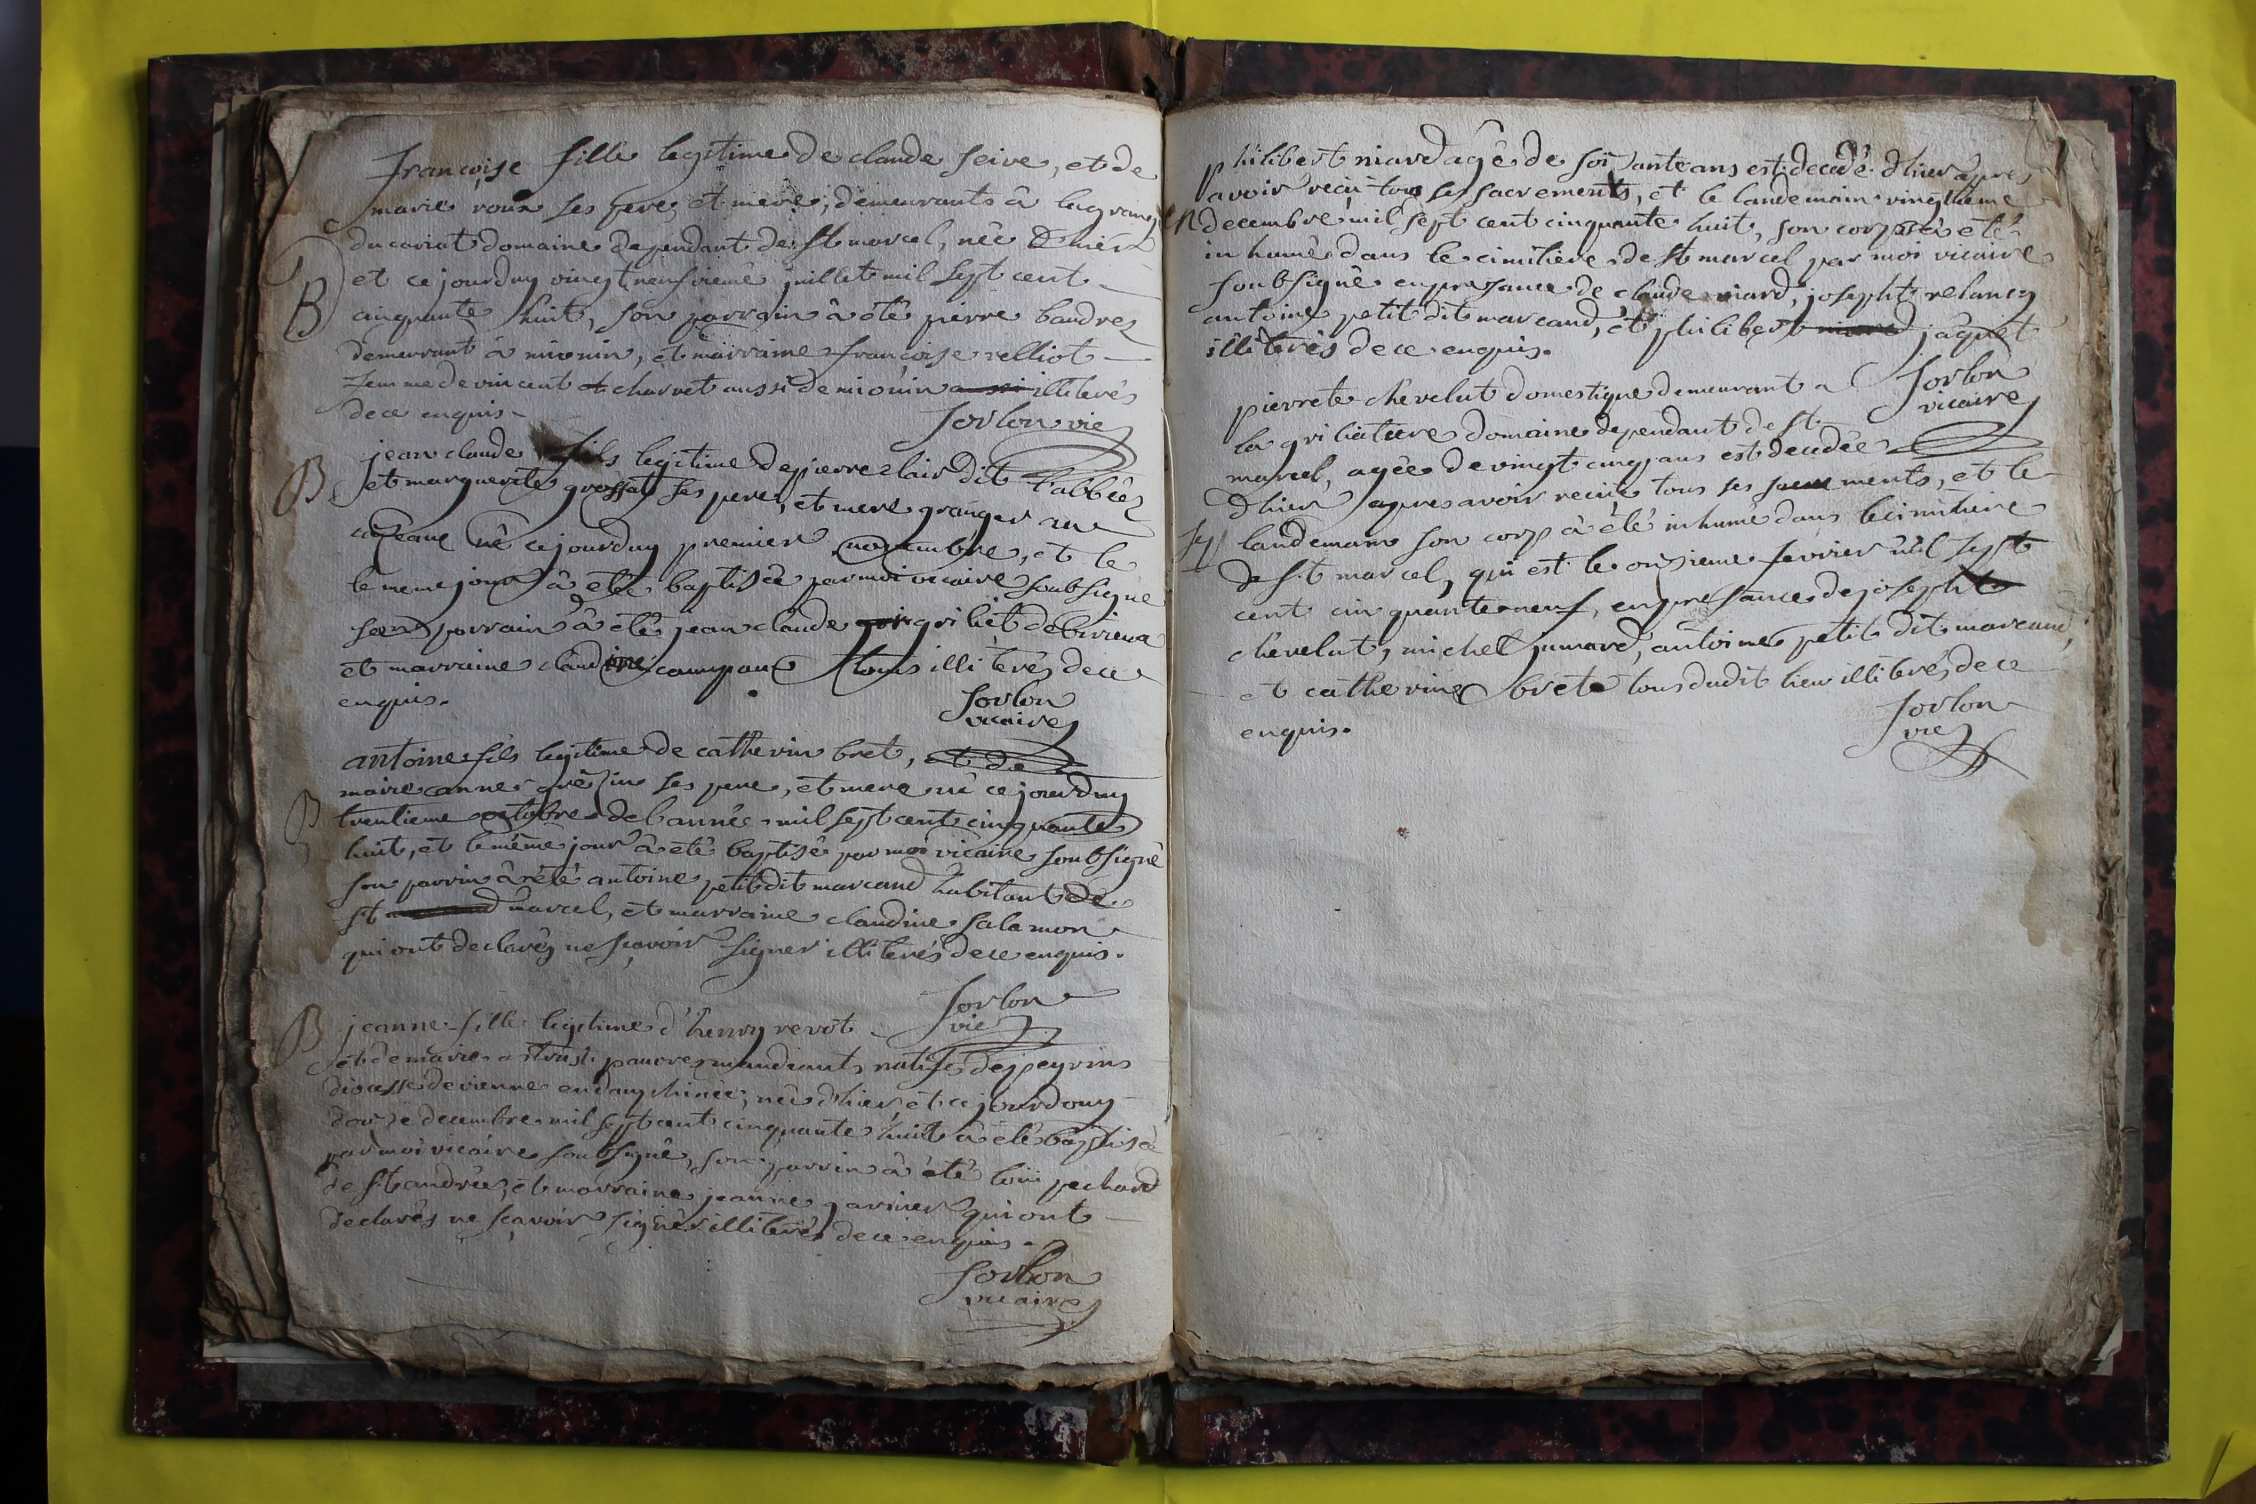 françoise fille legitime de claude seive, et de
marie roux ses pere, et mere, demeurants â la grange
du cariat domaine dependant de st marcel, née d'hiér
et ce jourduy vingt neufvieme juillet mil sept cent
B
cinquante huit, son parrain â été pierre baudrez
demeurant â mionin, et marraine françoise relliot
femme de vincent charvet aussi de mionin illiterés
de ce enquis.
Sorlon vic
B
jean claude fils legitime de pierre clair dit l'abbée
et marguerite grossat ses pere, et mere granger au
né ce jourduy premier novembre, et le
le meme jour â été baptisée par moi vicaire soubsigné
son parrain â été jean claude griliet de birieux
et marraine claudine campan tous illitérés de ce
enquis.
Sorlon
vicaire
antoine fils legitime de catherin bret, et de
marie anne ses pere, et mere né ce jourduy
B
trentieme octobre de l'année mil sept cent cinquante
huit, et le même jour â été baptisé par moi vicaire soubsigné
son parrin â été antoine petit dit marcand habitant de
st marcel, et marraine claudine salamon
qui ont declaréz ne sçavoir signer illiterés de ce enquis.
Sorlon
vic
B
jeanne fille legitime d'henry revot
et de marie pauvres mandiants natifs de peyrins
diocesse de vienne en dauphinée, née d'hier, et ce jourdouy
douze decembre mil sept cent cinquante huit â été baptisée
par moi vicaire soubsigné, son parrin â été loüi pechard
de st andrée, et marraine jeanne garnier qui ont
declarés ne sçavoir signér illiterés de ce enquis.
Sorlon
vicaire
philibert niard agê de soixante ans est decedé d'hier apres
avoir reçu tous ses sacrements, et le landemain vingtieme
decembre mil sept cent cinquante huit, son corp â été
inhumé dans le cimitiere de st marcel par moi vicaire
soubsigné en presance de claude niard, joseph relancy
antoine petit dit marcand, et philibert jaquet
illiterés de ce enquis.
Sorlon
vicaire
pierrete chevelut domestique demeurant a
la griliatiere domaine dependant de st
marcel, agée de vingt cinq ans est decedée
d'hier apres avoir reciue tous ses sacrements, et le
landemain son corp â été inhumé dans le cimitiere
de st marcel, qui est le onzieme fevrier mil sept
cent cinquante neuf, en presance de joseph
chevelut, michel jumard, antoine petit dit marcand,
et catherin bret tous dudit lieu illiterés de ce
enquis.
Sorlon
vic